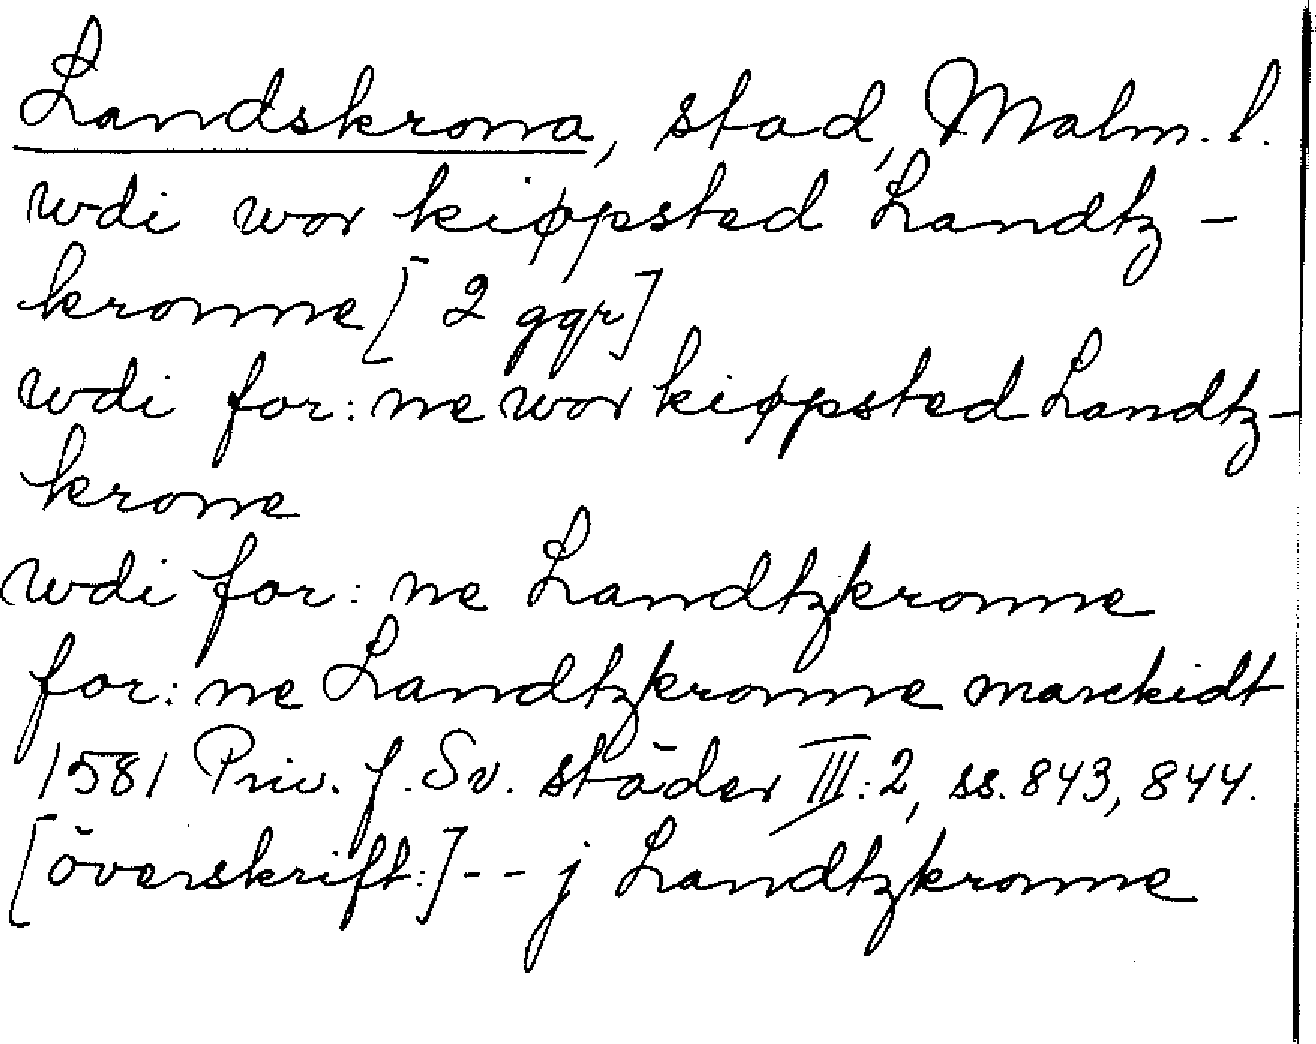 Landskrona, stad, Malm. l.
wdi wor kiøpsted Landtz-
kronne [2 ggr]
wdi for:ne wor kiøpsted Landtz-
krone
wdi for:ne Landtzkronne
for:ne Landtzkronne marckidt
1581 Priv. f. Sv. städer III:2, ss. 843, 844.
[överskrift:] -- j Landtzkronne